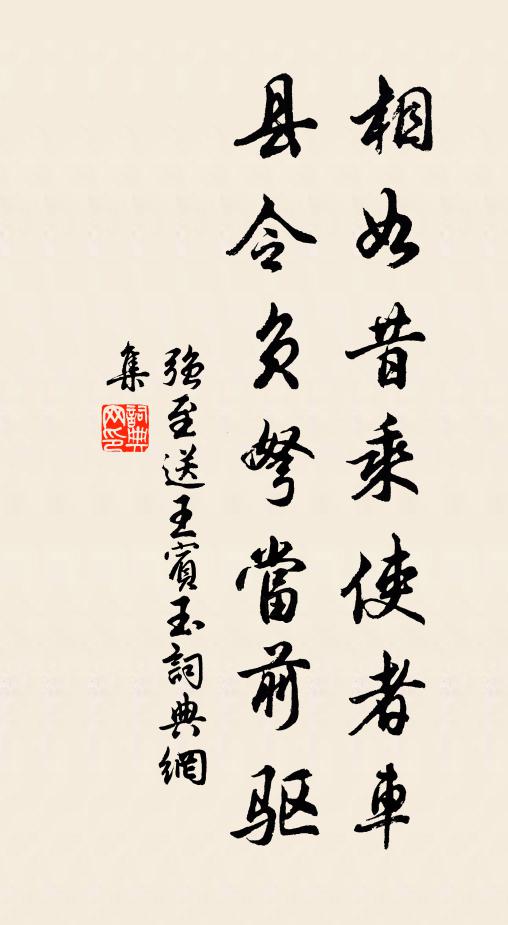 相如昔乘使者車
县令负弩當前驱
强至送王賓玉詞典網
集
詞典網印